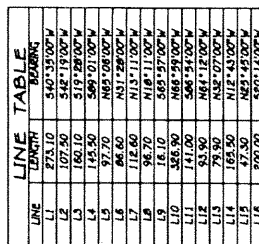 LINE TABLE
LINE LENGTH BEARING
L1 273.10 S40°35'00"W
L2 107.50 S42°19'00"W
L3 160.10 S19°28'00"W
L4 145.50 S89°01'00"W
L5 97.70 N65°08'00"W
L6 86.60 N31°28'00"W
L7 112.60 N13°11'00"W
L8 96.70 N18°11'00"W
L9 16.10 S65°57'00"W
L10 326.90 N66°59'00"W
L11 141.00 S86°54'00"W
L12 93.90 N64°12'00"W
L13 79.90 N32°07'00"W
L14 165.50 N12°43'00"W
L15 47.30 N25°45'00"W